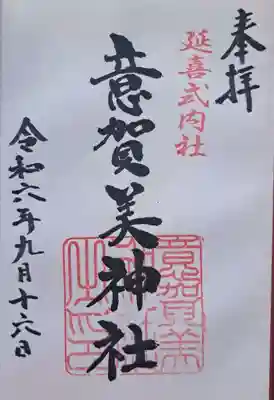 奉拝
延喜式内社
意賀美神社
令和六年九月十六日